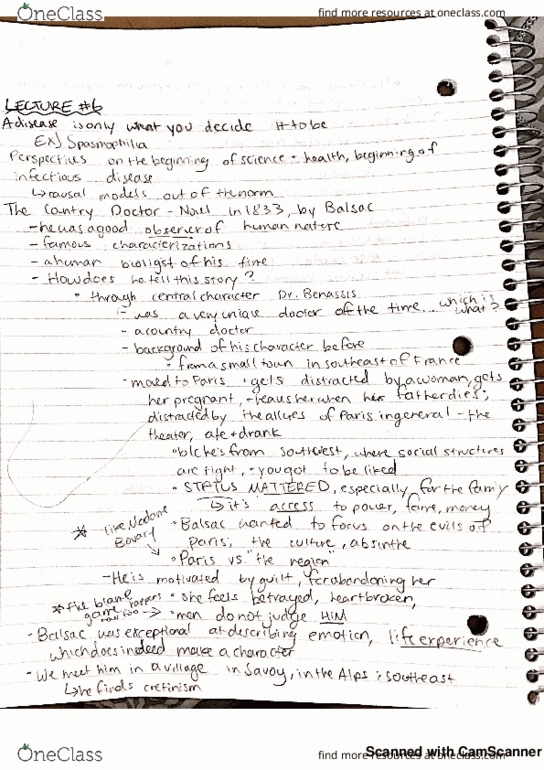 OneClass
find more resources at oneclass.com
LECTURE #6
A disease is only what you decide it to be
EX) Spasmophilia
Perspectives on the beginning of science - health, beginning of
infectious disease
↳ causal models out of the norm
The Country Doctor - Novel in 1833, by Balsac
- he was a good observer of human nature
- famous characterizations
- a human biologist of his time
- How does he tell this story?
• through central character Dr. Benassis
- was a very unique doctor of the time... which is what?
- a country doctor
- background of his character before
• from a small town in southeast of France
• moved to Paris • gets distracted by a woman, gets
her pregnant, + leaves her when her father dies;
distracted by the allures of Paris in general - the
theater, ate + drank
• b/c he's from southwest, where social structures
are tight, - you got to be liked
• STATUS MATTERED, especially for the family
↳ it's access to power, fame, money
* like Madame Bovary
• Balsac wanted to focus on the evils of
Paris; the culture, absinthe
• Paris vs. "the region"
- He is motivated by guilt, for abandoning her
* the blame game happens now too →
• she feels betrayed, heartbroken,
• men do not judge HIM
- Balsac was exceptional at describing emotion, life experience
which does indeed make a character
- We meet him in a village in Savoy, in the Alps; southeast
↳ he finds cretinism
OneClass
find more resources at oneclass.com
Scanned with CamScanner